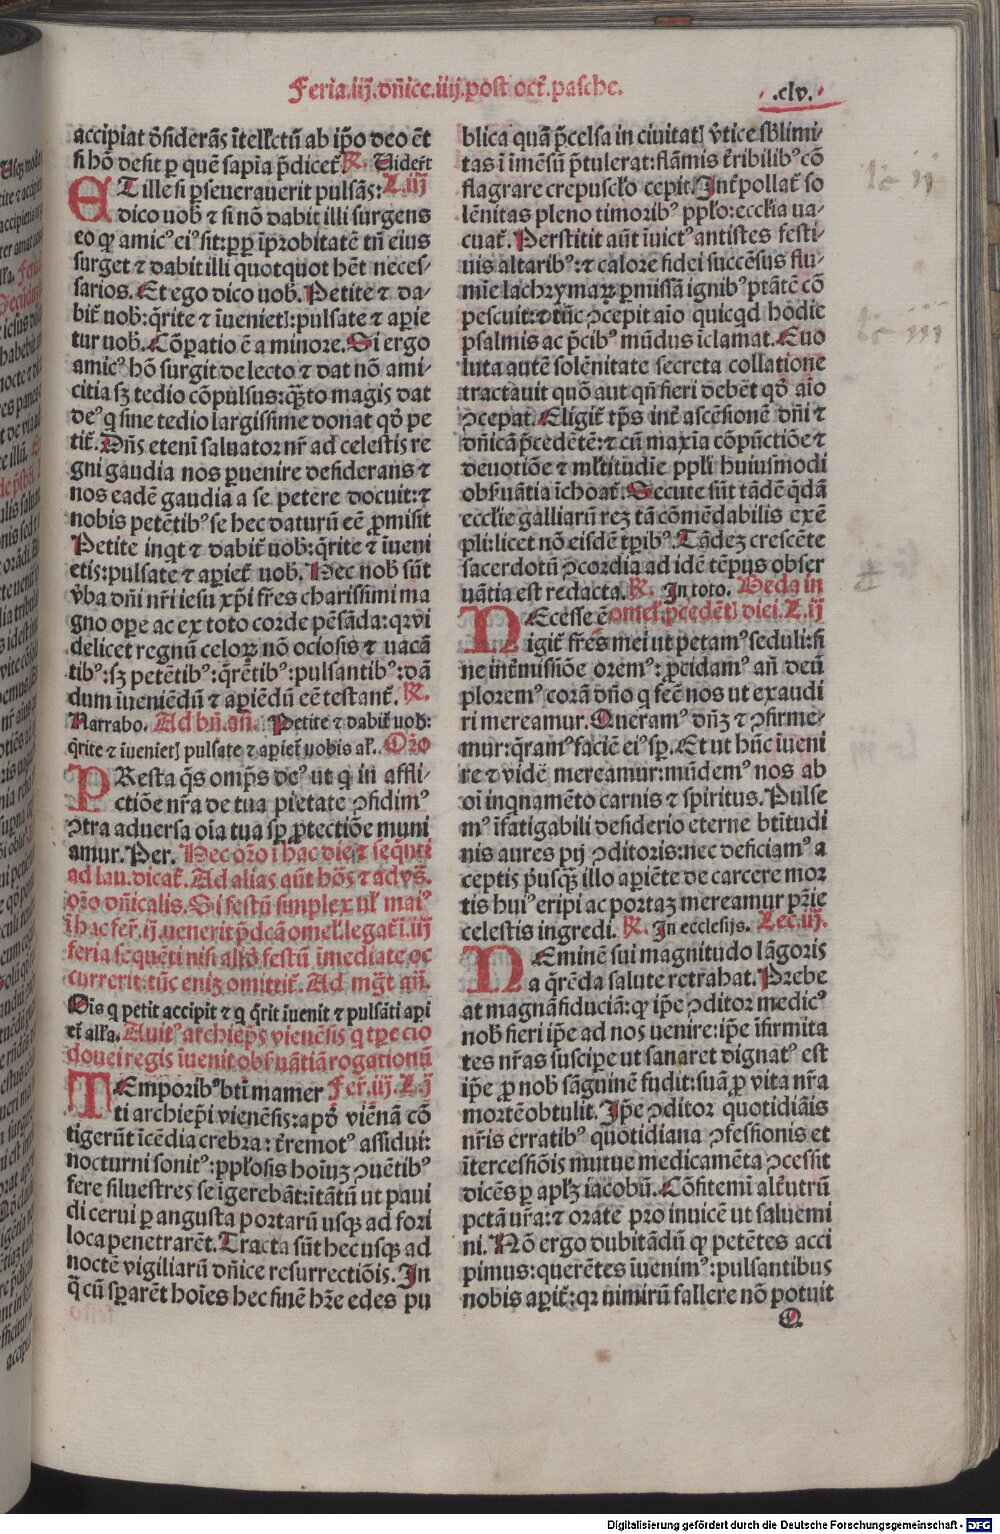 Feria.iij.dñice.iiij.post oct̃.pasche.
.clv.
accipiat ꝺ̃siderãs ĩtellc̃tũ ab ip̃o deo ẽt
si hõ desit ꝑ quẽ sapĩa p̃dicet̃ ℟. Viderẽt
ET ille si ꝑseuerauerit pulsãs: L.iij
dico uob̃ ⁊ si nõ dabit illi surgens
eo ꝙ amicꝰ eiꝰ sit: ꝓꝑ ĩprobitatẽ tñ eius
surget ⁊ dabit illi quotquot hẽt neces⸗
sarios. Et ego dico uob̃. Petite ⁊ da⸗
bit̃ uob̃: q̃rite ⁊ ĩuenietl: pulsate ⁊ aꝑie
tur uob̃. Cõꝑatio ẽ a minore. Si ergo
amicꝰ hõ surgit de lecto ⁊ dat nõ ami⸗
citia sꝫ tedio cõpulsus: q̃to magis dat
deꝰ q̃ sine tedio largissime donat qd̃ pe
tit̃. Dñs eteni saluator nr̃ ad celestis re
gni gaudia nos ꝑuenire desiderans ⁊
nos eadẽ gaudia a se petere docuit: ⁊
nobis petẽtibꝰ se hec daturũ eẽ ꝓmisit
Petite inqt ⁊ dabit̃ uob̃: q̃rite ⁊ ĩueni
etis: pulsate ⁊ aꝑiet̃ uob̃. Hec nob̃ sũt
v̾ba dñi nr̃i iesu xp̃i fr̃es charissimi ma
gno oꝑe ac ex toto corde pẽsãda: qꝛ vi
delicet regnũ celoꝝ nõ ociosis ⁊ uacã
tibꝰ: sꝫ petẽtibꝰ: q̃rẽtibꝰ: pulsantibꝰ: dã
dum ĩueniẽdũ ⁊ aꝑiẽdũ eẽ testant̃. ℟.
Narrabo. Ad bñ. añ. Petite ⁊ dabit̃ uob̃:
q̃rite ⁊ ĩuenietl pulsate ⁊ aꝑiet̃ uobis al̃. Or̃o
PResta q̃s omp̃s deꝰ ut q̃ in affli⸗
ctiõe nr̃a de tua pietate ꝯfidimꝰ
ꝯtra aduersa oĩa tua sꝑ ꝓtectiõe muni
amur. Per. Hec or̃o ĩ hac die ⁊ seq̃nti
ad lau. dicat̃. Ad alias aũt hõs ⁊ ad vs̃.
or̃o dñicalis. Si festũ simplex ul̃ maiꝰ
ĩ hac fer̃. ij. uenerit p̃dcã omel̃. legat̃ i. iij
feria sequẽti nisi aliõ festũ imediate oc
currerit: tũc eniz omittit̃. Ad mg̃t añ.
Oĩs q̃ petit accipit ⁊ q̃ q̃rit ĩuenit ⁊ pulsãti aꝑi
et̃ all̃a. Auitꝰ archiep̃s vienẽsis q̃ tꝑe cio
douei regis ĩuenit obs̃uãtiã rogationũ
TEmporibꝰ btĩ mamer Fer̃. iij. L. ij
ti archiep̃i vienẽsis: apd̃ viẽnã cõ
tigerũt ĩcẽdia crebra: t̃remotꝰ assidui:
nocturni sonitꝰ: ꝓpl̃osis hoĩuꝫ ꝯuẽtibꝰ
fere siluestres se ĩgerebãt: itãtũ ut paui
di cerui ꝑ angusta portarũ usqꝫ ad fori
loca penetrarẽt. Tracta sũt hec usqꝫ ad
noctẽ vigiliarũ dñice resurrectiõis. In
q̃ cũ sꝑarẽt hoĩes hec finẽ hr̃e edes pu
blica quã p̃celsa in ciuitatl v̾tice sb̃limi⸗
tas ĩ imẽsũ p̃tulerat: flãmis t̃ribilibꝰ cõ
flagrare crepuscl̃o cepit. Int̃pollat̃ so
lẽnitas pleno timoribꝰ ppl̃o: eccl̃ia ua⸗
cuat̃. Perstitit aũt ĩuictꝰ antistes festi⸗
uis altaribꝰ: ⁊ calore fidei succẽsus flu⸗
mĩe lachrymaꝝ ꝑmissã ignibꝰ ptãtẽ cõ
pescuit: ⁊ tũc ꝯcepit aĩo quicqd hodie
psalmis ac p̃cibꝰ mũdus ĩclamat. Euo
luta autẽ solẽnitate secreta collatione
tractauit quõ aut qñ fieri debẽt qd̃ aĩo
ꝯcepat̃. Eligit̃ tp̃s int̃ ascẽsionẽ dñi ⁊
dñicã p̃cedẽtẽ: ⁊ cũ maxĩa cõpũctiõe ⁊
deuotiõe ⁊ ml̃titudĩe ppl̃i huiusmodi
obs̃uãtia ĩchoat̃. Secute sũt tãdẽ q̃dã
eccl̃ie galliarũ reꝫ tã cõmẽdabilis exẽ
pli: licet nõ eisdẽ tꝑibꝰ. Tãdeꝫ crescẽte
sacerdotũ ꝯcordia ad idẽ tẽpus obser
uãtia est redacta. ℟. In toto. Beda in
NEcesse ẽ omel̃. p̃cedẽtl diei. L. ij
igit̃ fr̃es mei ut petamꝰ seduli: si
ne int̃missiõe oremꝰ: ꝓcidamꝰ añ deũ
ploremꝰ corã dño q̃ fecĩ nos ut exaudi
ri mereamur. Queramꝰ dñꝫ ⁊ ꝯfirme⸗
mur: q̃ramꝰ faciẽ eiꝰ sꝑ. Et ut hũc ĩueni
re ⁊ vidẽ mereamur: mũdemꝰ nos ab
oĩ inqnamẽto carnis ⁊ spiritus. Pulse
mꝰ ĩfatigabili desiderio eterne btĩtudi
nis aures pij ꝯditoris: nec deficiamꝰ a
ceptis p̃usqꝫ illo aꝑiẽte de carcere mor
tis huiꝰ eripi ac portaꝫ mereamur pr̃ie
celestis ingredi. ℟. In ecclesijs. Lec. iij.
NEminẽ sui magnitudo lãgoris
a q̃rẽda salute retrahat. Prebe
at magnã fiduciã: ꝙ ip̃e ꝯditor medicꝰ
nob̃ fieri ip̃e ad nos uenire: ip̃e ĩfirmita
tes nr̃as suscipe ut sanaret dignatꝰ est
ip̃e ꝓ nob̃ sãguinẽ fudit: suã ꝓ vita nr̃a
mortẽ obtulit. Ip̃e ꝯditor quotidiãis
nr̃is erratibꝰ quotidiana ꝯfessionis et
ĩtercessiõis mutue medicamẽta ꝯcessit
dicẽs ꝑ apl̃ꝫ iacobũ. Cõfitemĩ alt̃utrũ
pctã ur̃a: ⁊ orate pro inuicẽ ut saluemi
ni. Nõ ergo dubitãdũ ꝙ petẽtes acci
pimus: querẽtes ĩuenimꝰ: pulsantibus
nobis aꝑit̃: qꝛ nimirũ fallere nõ potuit
Q
Digitalisierung gefördert durch die Deutsche Forschungsgemeinschaft - DFG